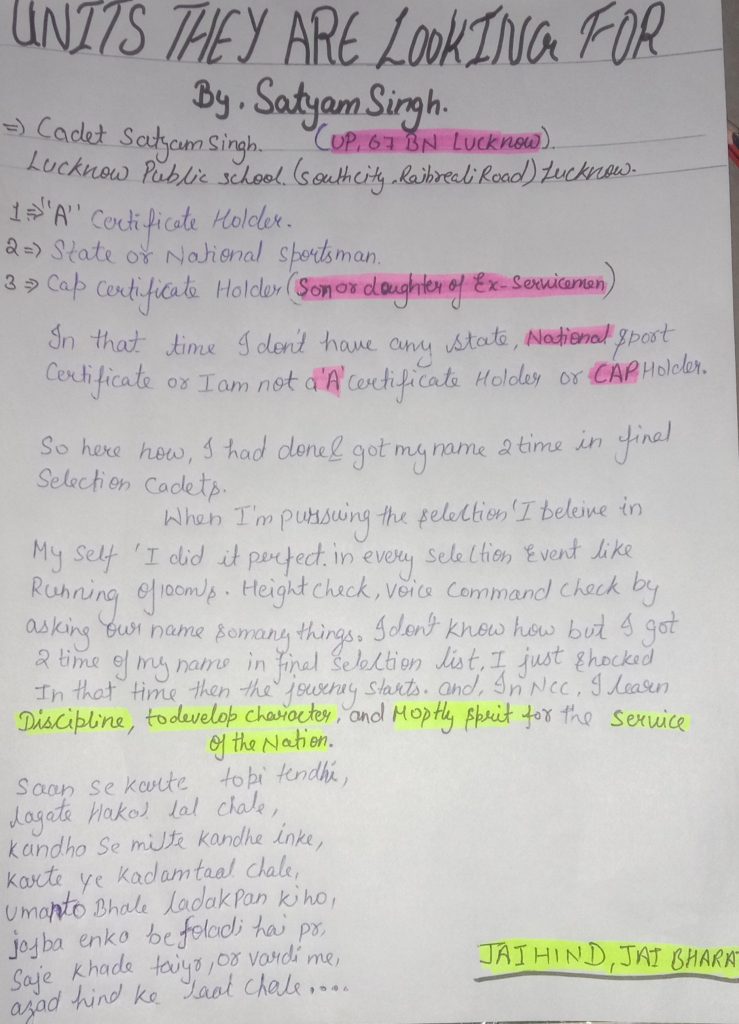 UNITS THEY ARE LOOKING FOR
By. Satyam Singh.
=> Cadet Satyam Singh. (UP, 67 BN Lucknow).
Lucknow Public school. (southcity. Raibreali Road) Lucknow.
1 => "A" Certificate Holder.
2 => State or National sportsman.
3 => Cap Certificate Holder (Son or daughter of Ex-Servicemen)
In that time I don't have any state, National sport
Certificate or I am not a 'A' certificate Holder or CAP Holder.
So here how, I had done & got my name 2 time in final
Selection Cadets.
When I'm pursuing the selection 'I beleive in
My self' I did it perfect. in every selection Event like
Running of 100m/s. Height check, voice command check by
asking our name somany things. I don't know how but I got
2 time of my name in final selection list, I just shocked
In that time then the journey starts. and, In NCC, I learn
Discipline, to develop character, and Moptly sprit for the service
of the Nation.
Saan se karte topi tendhi,
lagate Hakol lal chale,
kandho se milte kandhe inke,
karte ye kadamtaal chale,
umanto Bhale ladakpan ki ho,
josba enko be foladi hai pr,
Saje khade taiyr, or vardi me,
azad hind ke laal chale....
JAI HIND, JAI BHARA